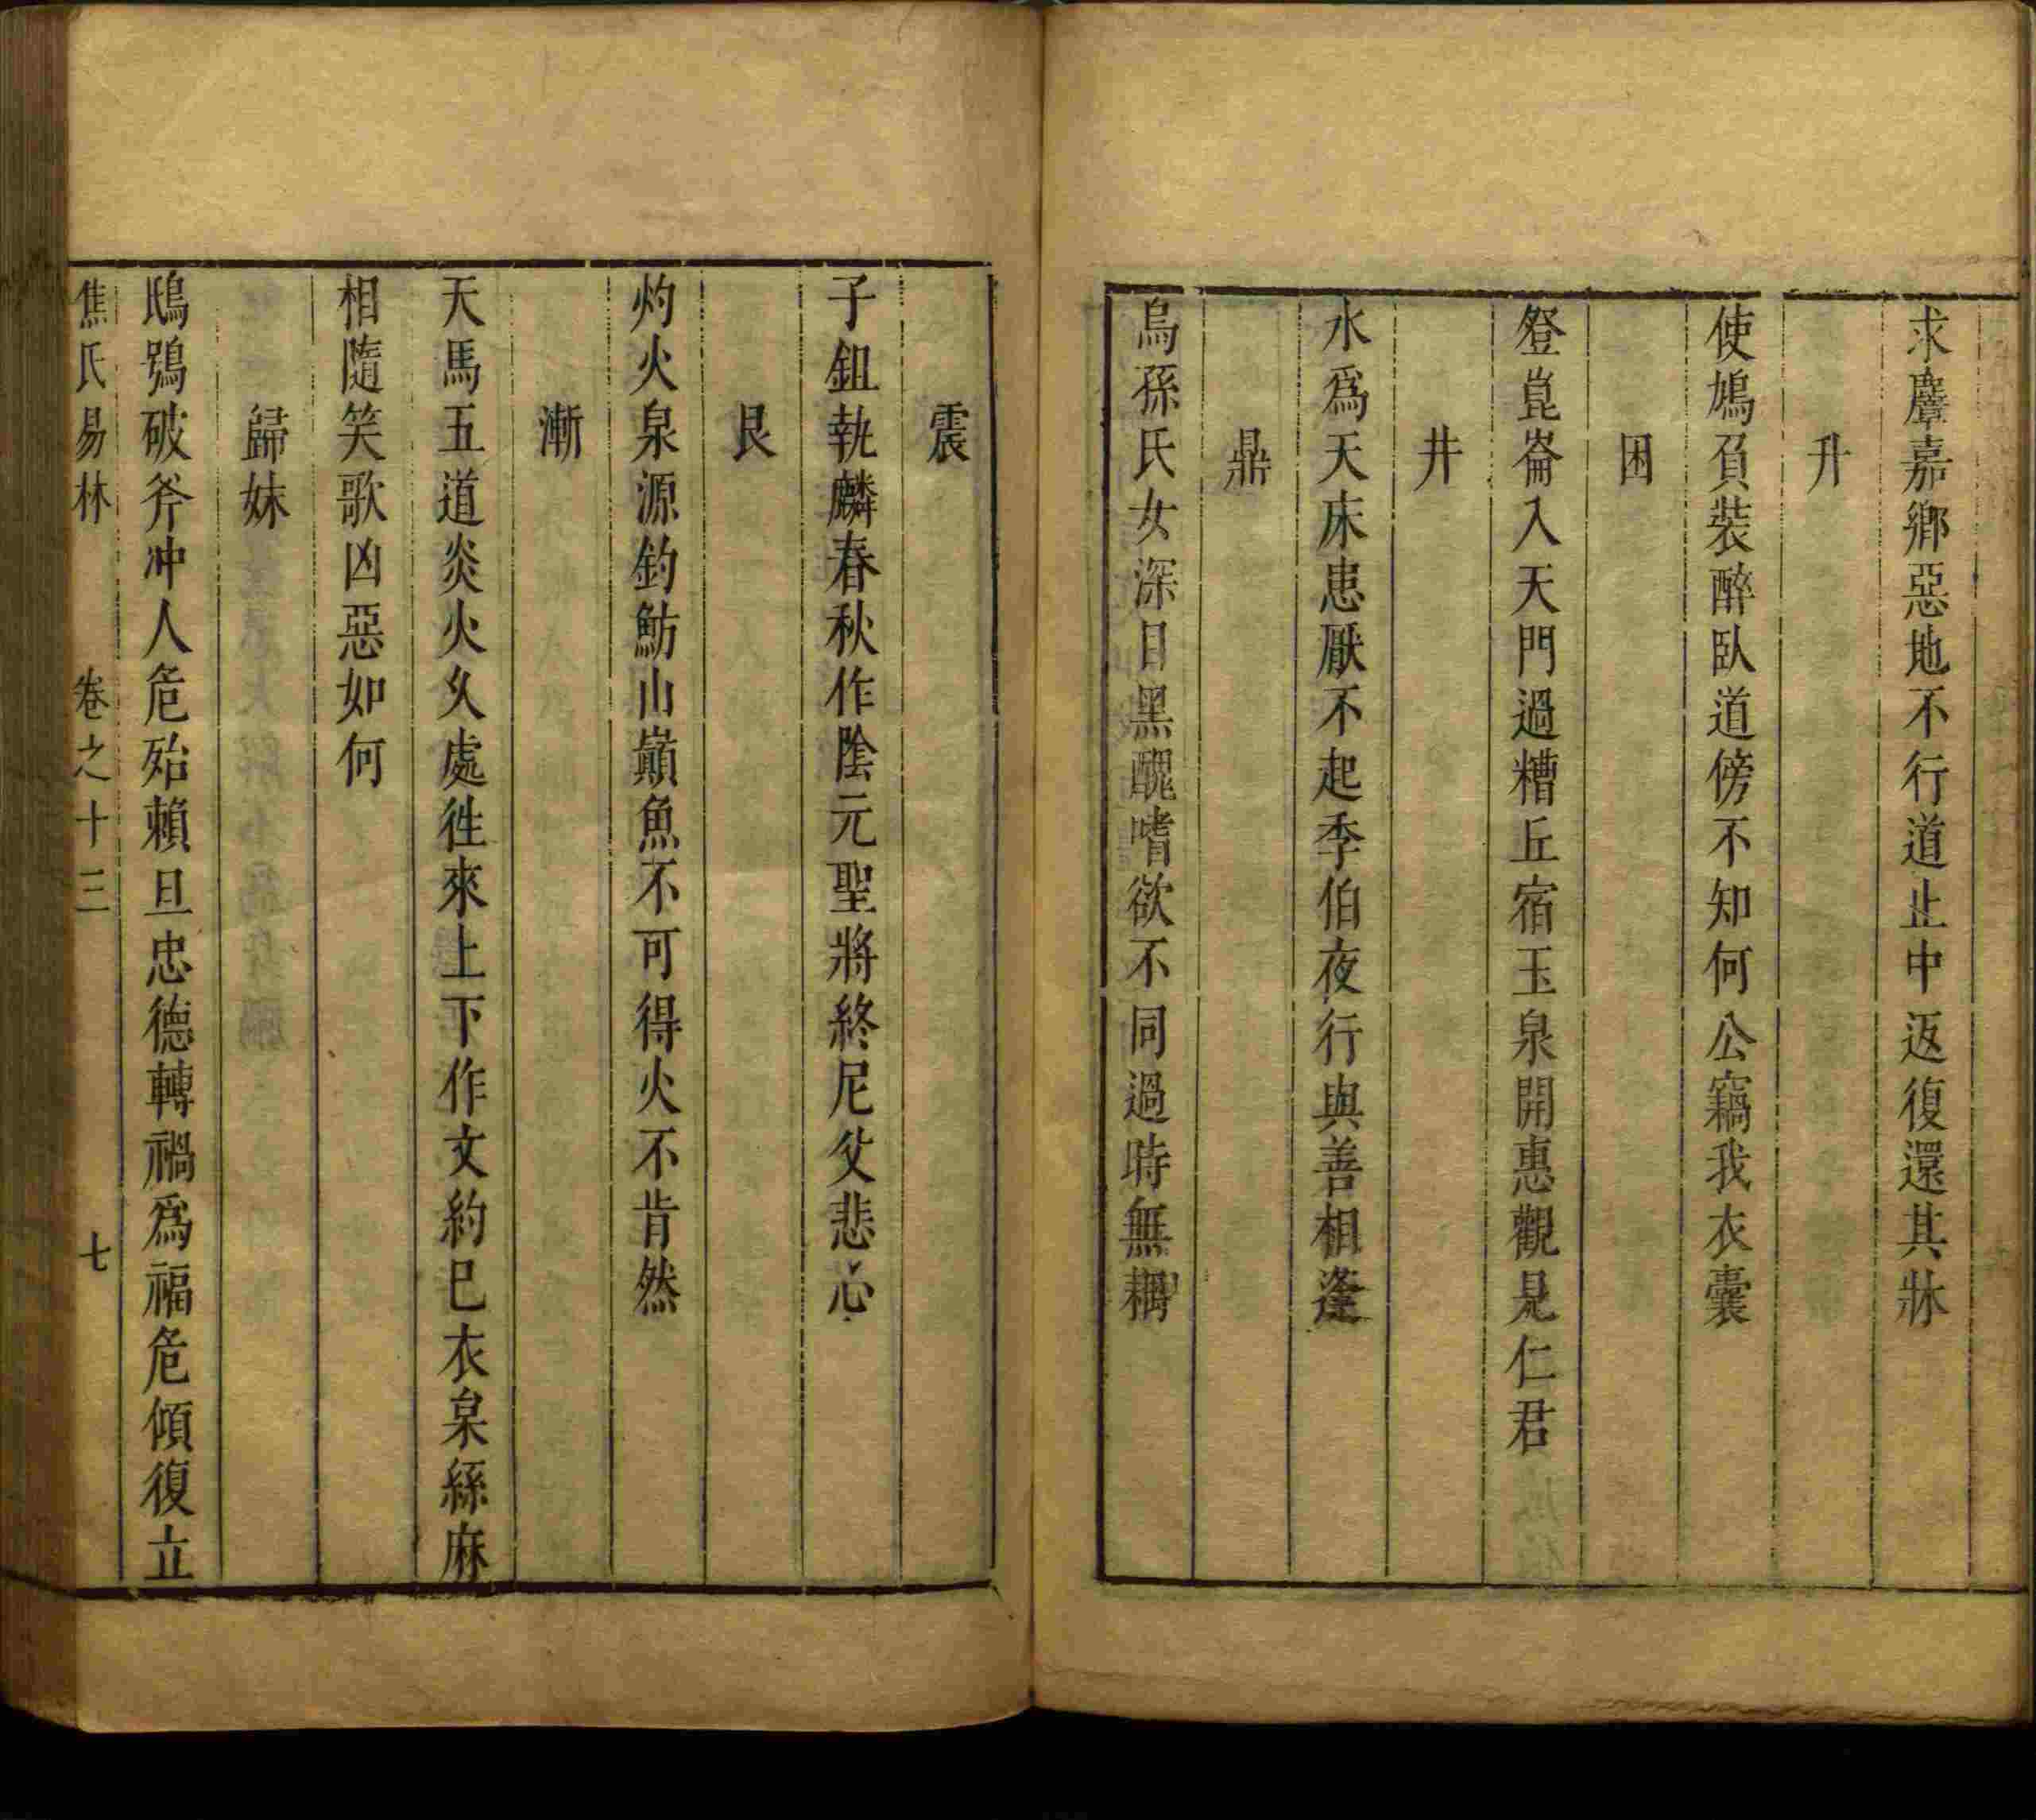 求麞嘉鄉惡地不行道止中返復還其牀
升
使鳩負裝醉臥道傍不知何公竊我衣囊
困
登崑崙入天門過糟丘宿玉泉開惠觀見仁君
井
水爲天床患厭不起季伯夜行與善相逢
鼎
烏孫氏女深目黑醜嗜欲不同過時無耦
震
子鉏執麟春秋作陰元聖將終尼父悲心
艮
灼火泉源釣魴山巔魚不可得火不肯然
漸
天馬五道炎火久處徃來上下作文約巳衣枲絲麻
相隨笑歌凶惡如何
歸妹
鴟鴞破斧冲人危殆賴旦忠德轉禍爲福危傾復立
焦氏易林 卷之十三 七